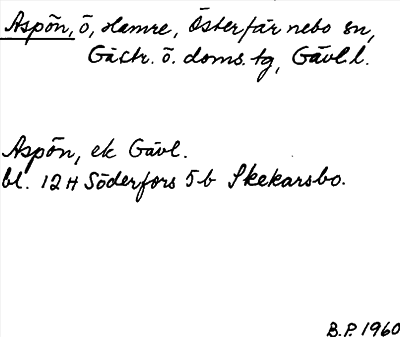 Aspön, ö, Hamre, Österfärnebo sn,
Gästr. ö. doms. tg, Gävl. l.
Aspön, ek Gävl.
bl. 12 H Söderfors 5 b Skekarsbo.
B.P. 1960